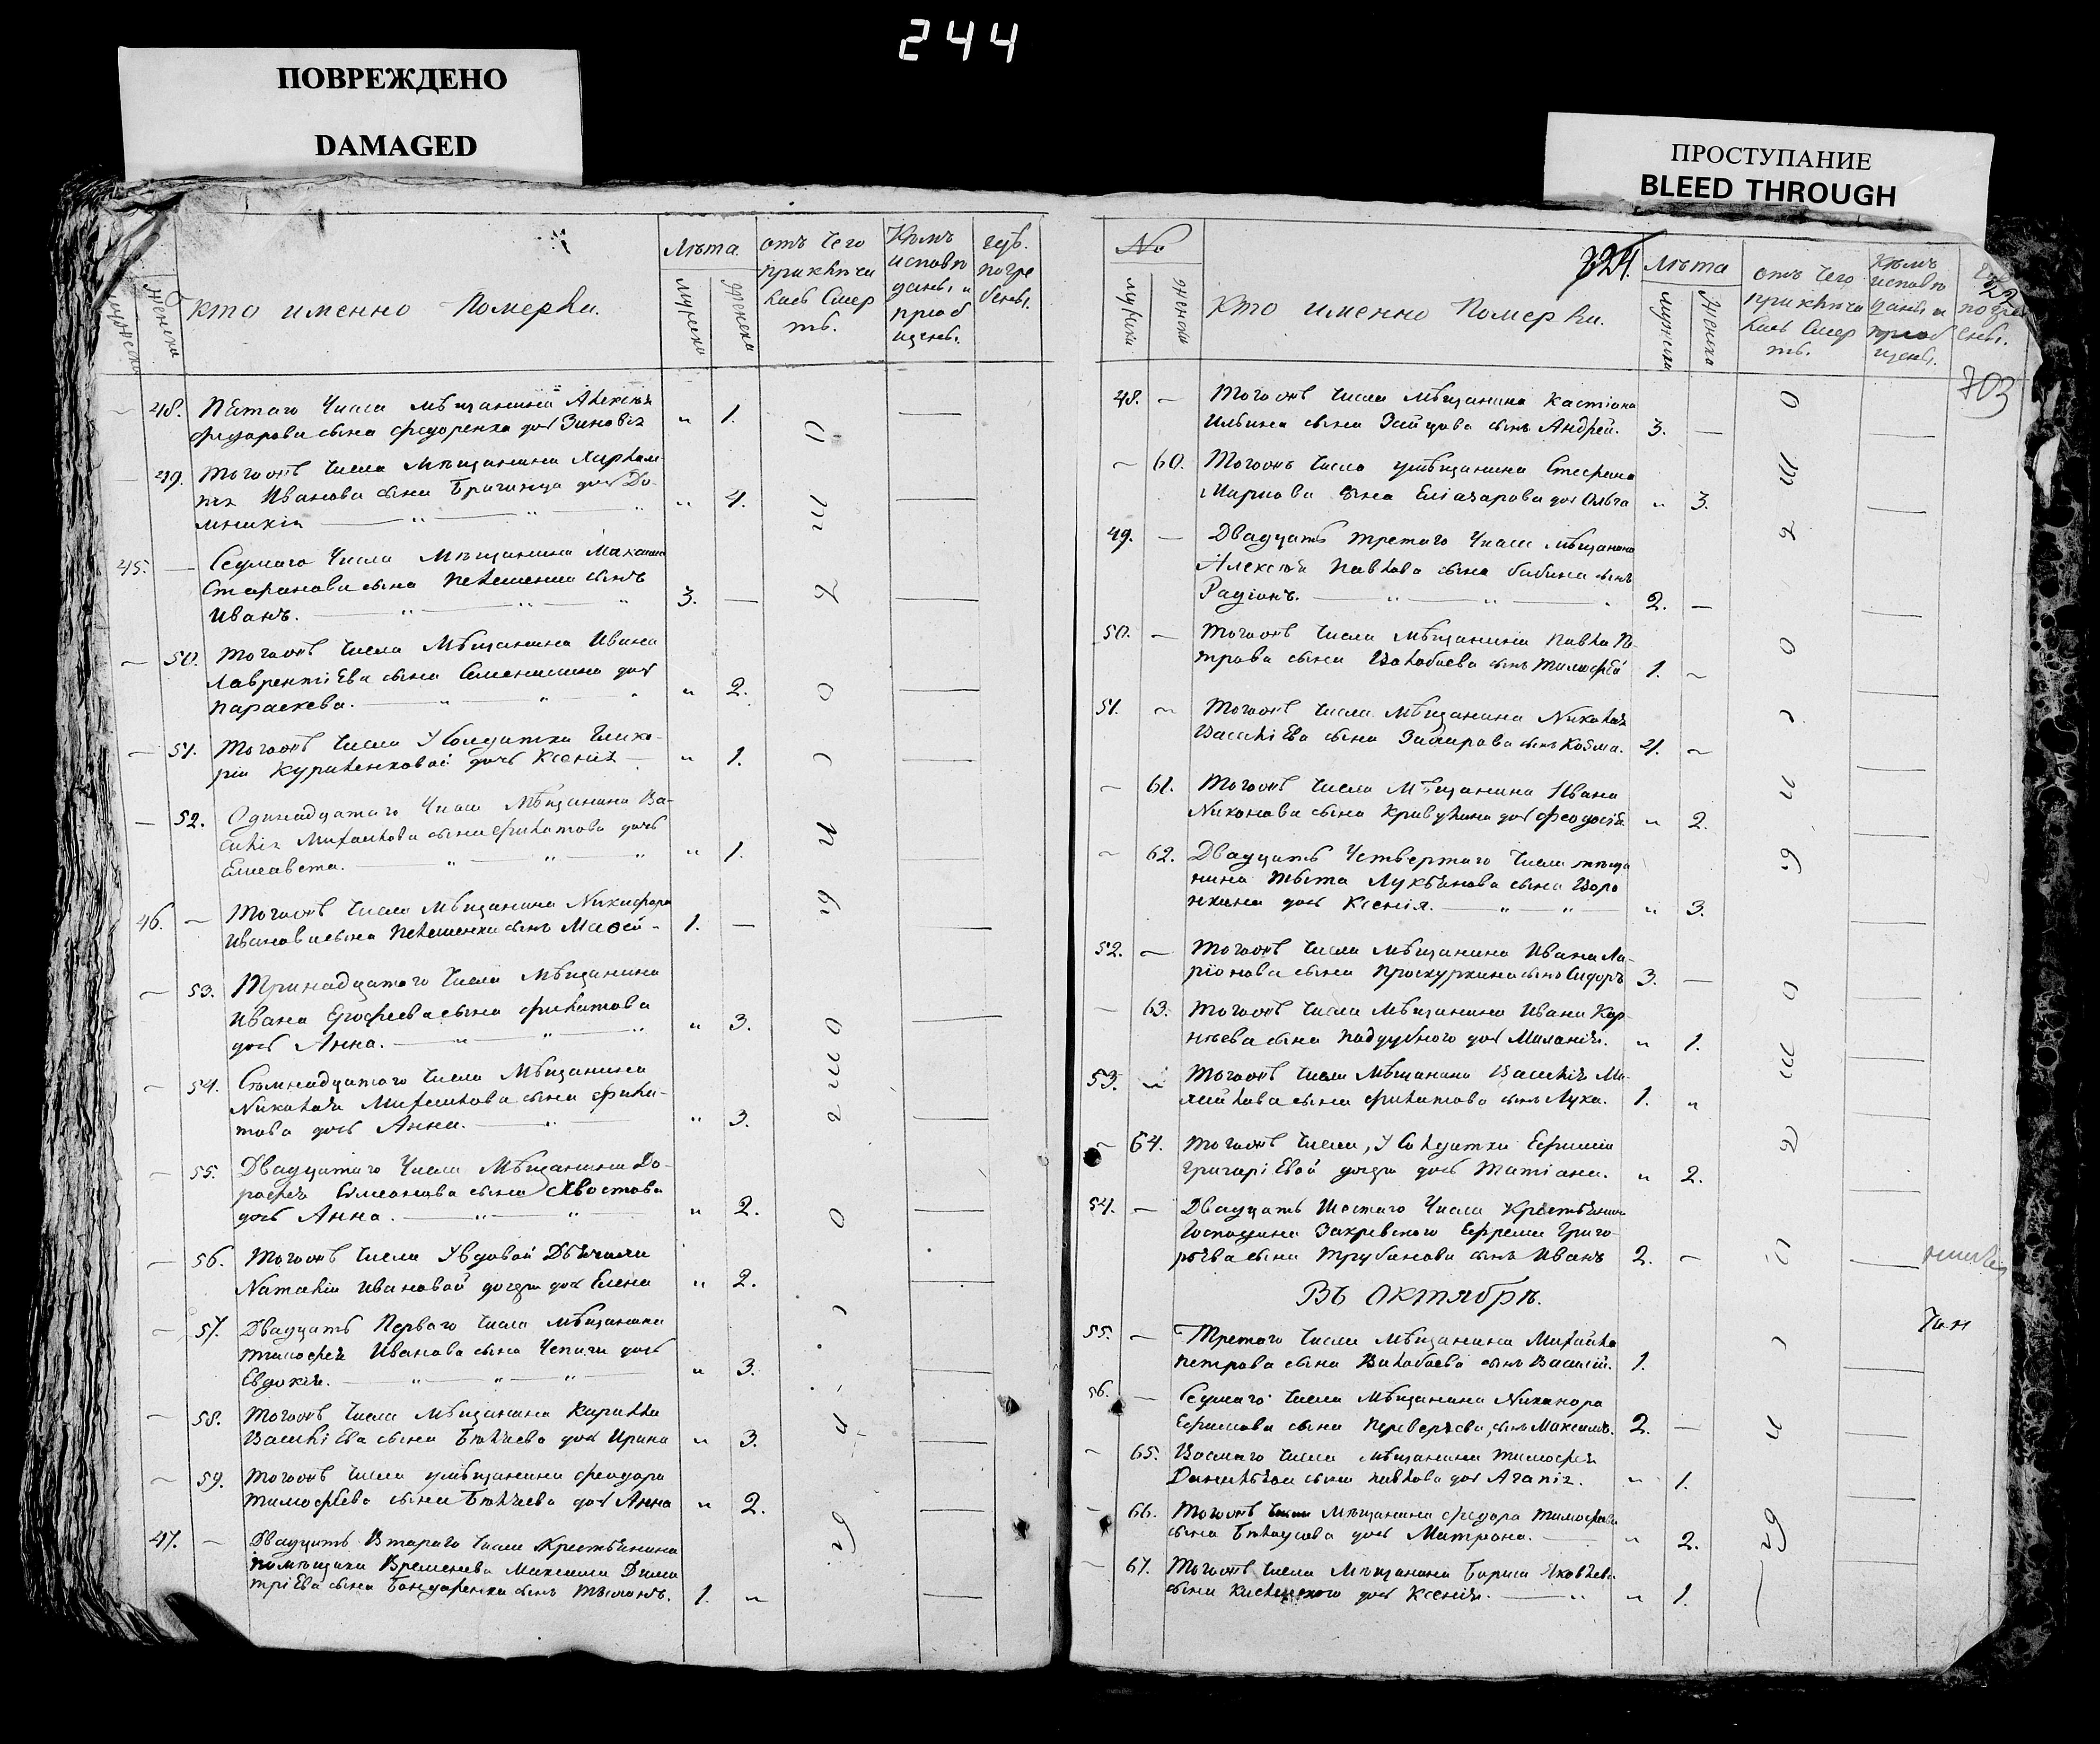 244
ПОВРЕЖДЕНО
DAMAGED
ПРОСТУПАНИЕ
BLEED THROUGH
мужески
женски
Кто именно Померли.
Лѣта
мужески
женски
отъ Чего
приключи
лась Смер
ть.
Кѣмъ
исповѣ
даны и
приоб
щены.
гдѣ
погре
бены.
48. Пятаго Числа мѣщанина Алексѣя
Федорова сына Федоренка дочь Зиновiя " 1.
49. Тогожъ Числа Мѣщанина Харлам
пiя Иванова сына Браганца дочь До-
мникiя " 4.
45. — Седмаго Числа Мѣщанина Максима
сына сынъ
Иванъ. 3. —
50. Тогожъ Числа Мѣщанина Ивана
Лаврентiева сына дочь
Параскева. " 2.
51. Тогожъ Числа У Солдатки Глике-
рiи Куриленковой дочь Ксенiя " 1.
52. Одинадцатаго Числа Мѣщанина Ва-
силiя Михайлова сына Филатова дочь
Елисавета. " 1.
46. — Тогожъ Числа Мѣщанина Никифора
Иванова сына сынъ 1. —
53. Тринадцатаго Числа Мѣщанина
Ивана Ерофеева сына Филатова
дочь Анна. " 3.
54. Числа Мѣщанина
Николая Михайлова сына Фила-
това дочь Анна. " 3.
55. Двадцатаго Числа Мѣщанина До-
рофея Симеонова сына Хвостова
дочь Анна. " 2.
56. Тогожъ Числа У вдовой
Наталiи Ивановой дочери дочь Елена " 2.
57. Двадцать Перваго Числа Мѣщанина
Тимофея Иванова сына Чепиги дочь
Евдокiя. " 3.
58. Тогожъ Числа Мѣщанина Кирилла
Василiева сына дочь Ирина " 3.
59. Тогожъ Числа умѣщанина Феодора
Тимофѣева сына дочь Анна " 2.
47. — Двадцать Втораго Числа Крестьянина
помѣщика Временева Максима Дими
трiева сына Бондаренка сынъ 1. "
№
мужески
женски
Кто именно Померли.
324.
Лѣта
мужески
Женско
отъ Чего
приключи
лась Смер
ть.
Кѣмъ
исповѣ
даны и
приоб
щены.
погре
бены.
703
48. — Тогожъ Числа Мѣщанина Кастiана
Ильина сына Зайцова сынъ Андрей. 3. —
— 60. Тогожъ Числа умѣщанина Стефана
Маркова сына Елiазарова дочь Ольга " 3.
49. — Двадцать третаго Числа мѣщанина
Алексѣя Павлова сына Бабина сынъ
Радiонъ. 2. —
50. — Тогожъ Числа Мѣщанина Павла Пе-
трова сына сынъ Тимофѣй 1. —
51. — Тогожъ Числа Мѣщанина Николая
Василiева сына сынъ Козма. 4. —
— 61. Тогожъ Числа Мѣщанина Ивана
Никонова сына Кривулина дочь Феодосiя " 2.
— 62. Двадцать Четвертаго Числа мѣща
нина Тита Лукьянова сына Воро
нкина дочь Ксенiя. " 3.
52. — Тогожъ Числа Мѣщанина Ивана Ла-
рiонова сына Проскуркина сынъ Сидоръ 3. —
— 63. Тогожъ Числа Мѣщанина Ивана Кор
нѣева сына Поддубного дочь Меланiя. " 1.
53. — Тогожъ Числа Мѣщанина Василiя Ми-
хайлова сына Филатова сынъ Лука. 1. "
— 64. Тогожъ Числа, У Солдатки Ефимiи
Григорiевой дочери дочь Татiана. " 2.
54. — Двадцать Шестаго Числа Крестьянина
Господина Закревского Ефрема Григо-
рьева сына Трубачова сынъ Иванъ 2. —
Въ Октябрѣ.
55. — Третаго Числа Мѣщанина Михайла
Петрова сына сынъ Василiй. 1.
56. — Седмаго Числа Мѣщанина Никанора
Ефимова сына Переверзева, сынъ Максимъ. 2. —
— 65. Восмаго Числа мѣщанина Тимофея
сына Павлова дочь Агапiя. " 1.
— 66. Тогожъ Мѣщанина Федора Тимофѣева
сына Бѣлоусова дочь Матрона. " 2.
— 67. Тогожъ Числа Мѣщанина Бориса Яковлева
сына дочь Ксенiя. " 1.